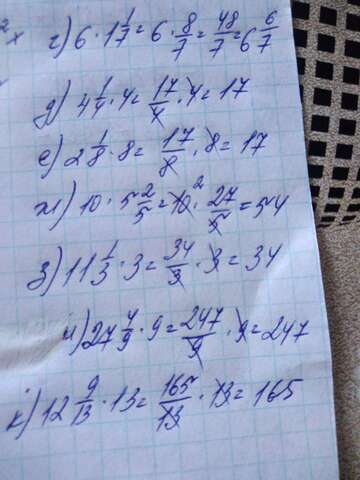 г) 6 · 1 1/7 = 6 · 8/7 = 48/7 = 6 6/7
д) 4 1/4 · 4 = 17/4 · 4 = 17
е) 2 1/8 · 8 = 17/8 · 8 = 17
ж) 10 · 5 2/5 = 10 2 · 27/5 = 54
з) 11 1/3 · 3 = 34/3 · 3 = 34
и) 27 4/9 · 9 = 247/9 · 9 = 247
к) 12 9/13 · 13 = 165/13 · 13 = 165